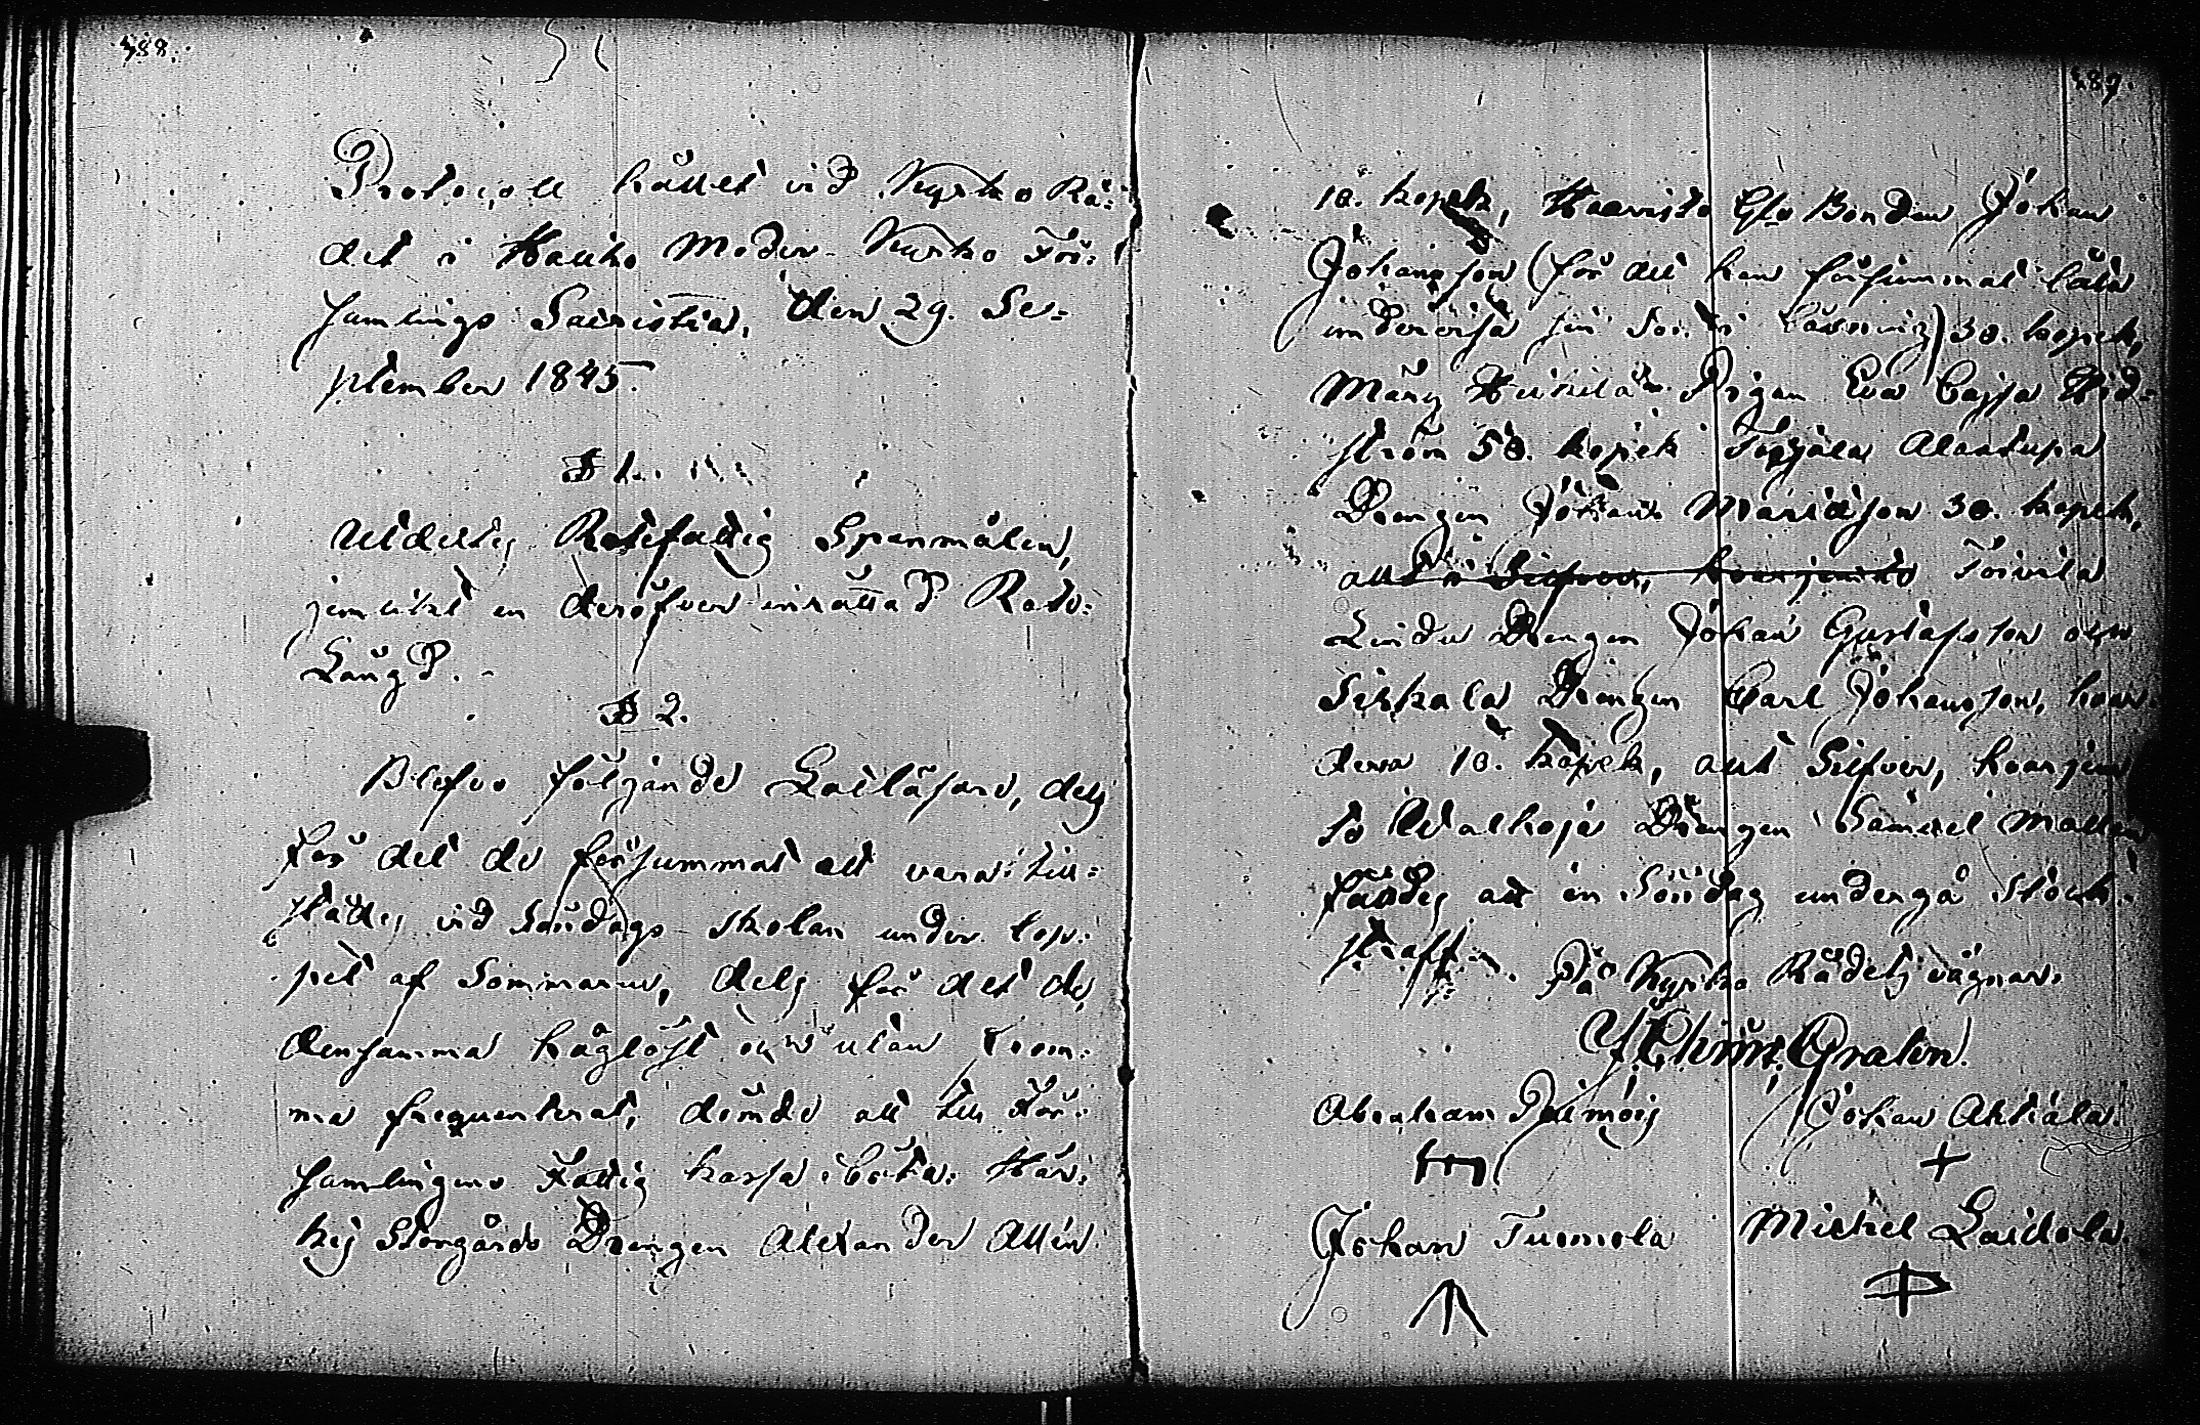 388.
Protocoll hållet vid Kyrko Rå-
det i Hauho Moder-Kyrko För-
samlings Sacristia, den 29. Se-
ptember 1845.
§ 1.
Utdeltes Rotefattig Spanmålen,
jemlikt en deröfver inrättad Rote-
Längd.
§ 2.
Blefvo följande Lailäsare, dels
för det de försummat att vara till-
städes vid Söndags-skolan under lop-
pet af Sommaren, dels för det de,
densamma håglöst och utan from-
ma frequenterat, dömde att till För-
samlingens Fattig kassa böta:
Storgårds Drengen Alexander Allén
389.
10. kopek, Haavisto Bonden Johan
Johansson (för att han försummat låta
undervisa sin Son i Läsning) 30. kopek,
Pigan Eva Cajsa
ström 50. kopek Alastupa
Drengen Johan 30. kopek,
allt i Silfver, hvarjemte Toivila
Drengen Johan Gustafsson och
Sirkala Drengen Carl Johansson, hvar-
dera 10. kopek, allt Silfver, hvarjem-
te Walkoja Drengen Samuel
fälldes att en Söndag undergå Stock-
straff. På Kyrko Rådets vägnar.
Gralén.
Abraham Johan Ahtiala.
+
Johan Tuomola Michel Laidola